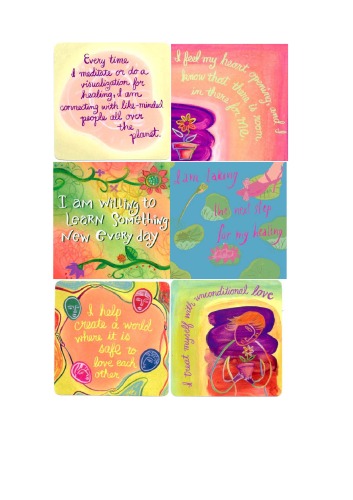 Every time
I meditate or do a
visualization for
healing, I am
connecting with like-minded
people all over
the
planet.
I feel my heart opening, and I
know that there is room
in there for me.
I am willing to
learn something
new every day
I am taking
the next step
for my healing
I help
create a world
where it is
safe to
love each
other
I treat myself with unconditional love